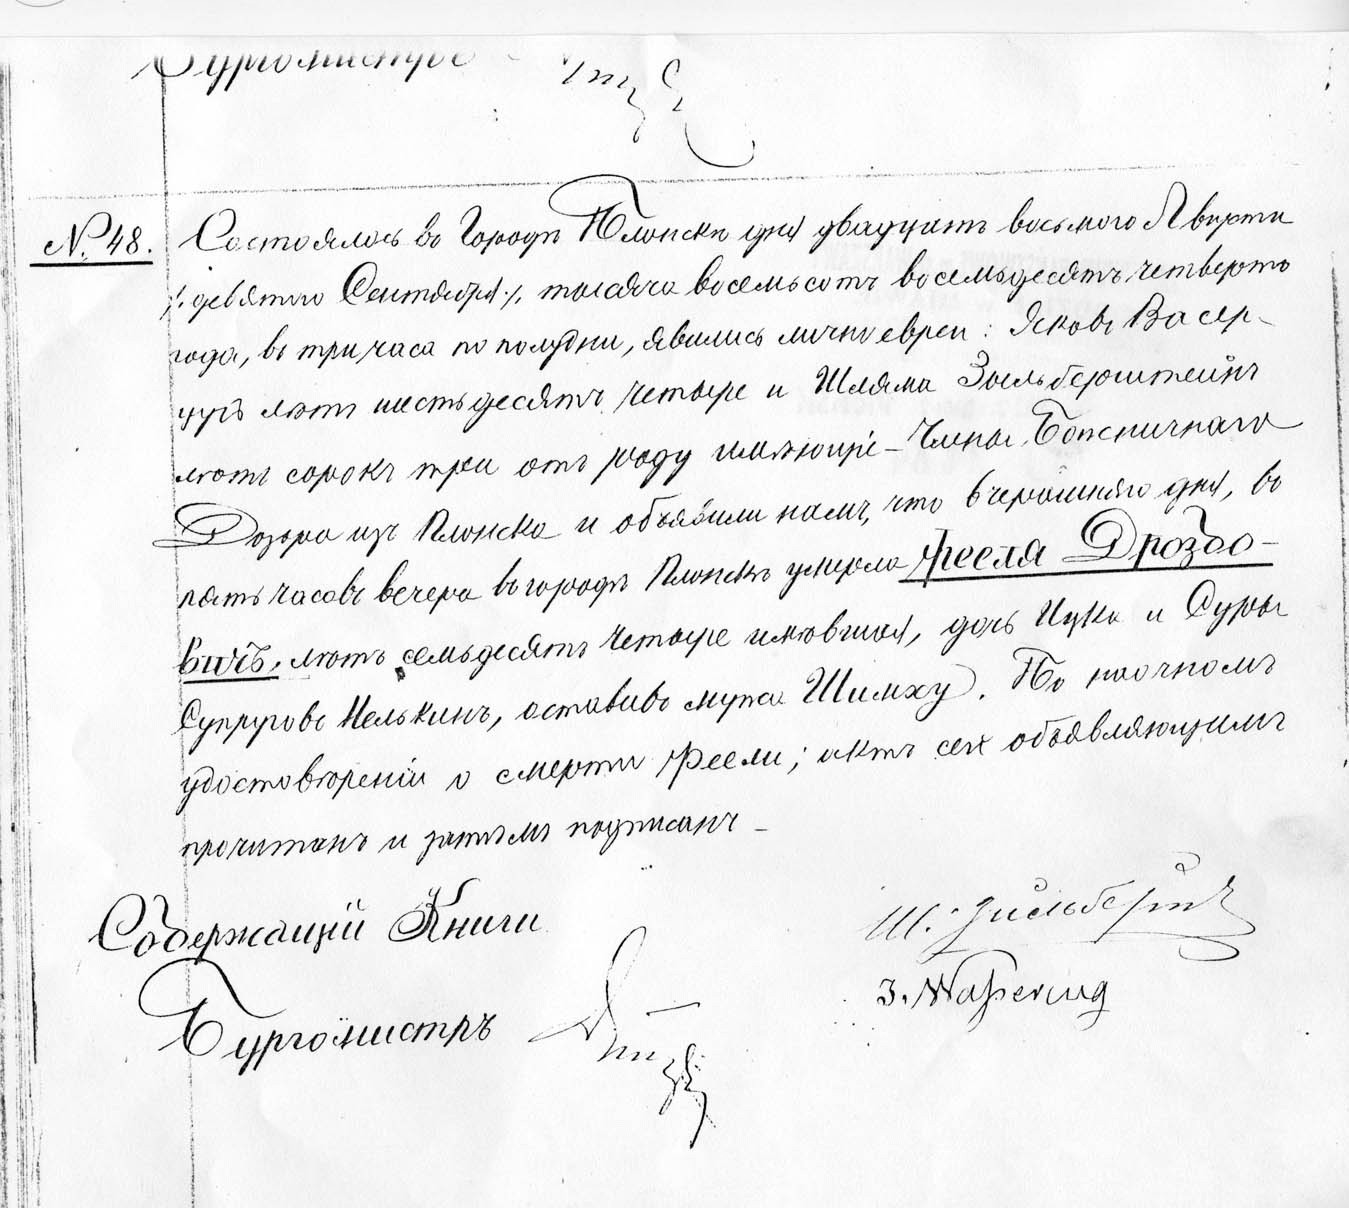 Бургомистръ
№ 48. Состоялось въ Городѣ Плонскѣ дня двадцать восьмого Августа
/: девятого Сентября :/ тысяча восемьсотъ восемьдесятъ четверто
года, въ три часа по полудни, явились лично евреи: Яковъ Васер-
цугъ лѣтъ шестьдесятъ четыре и Шляма Зыльберштейнъ
лѣтъ сорокъ три отъ роду имѣющіе – Члены Божничнаго
Дозора изъ Плонска и объявили намъ, что вчерашняго дня, въ
пять часовъ вечера въ городѣ Плонскѣ умерла Фееля Дроздо-
вичъ, лѣтъ семьдесятъ четыре имѣвшая, дочь Ицка и Суры
Супруговъ Нелькинъ, оставивъ мужа Шимху. По наочномъ
удостовѣреніи о смерти Феели; актъ сей объявляющимъ
прочитанъ и затѣмъ подписанъ –
Содержащій Книги
Бургомистръ
Ш. Зильберштейнъ
J. Waßerzug